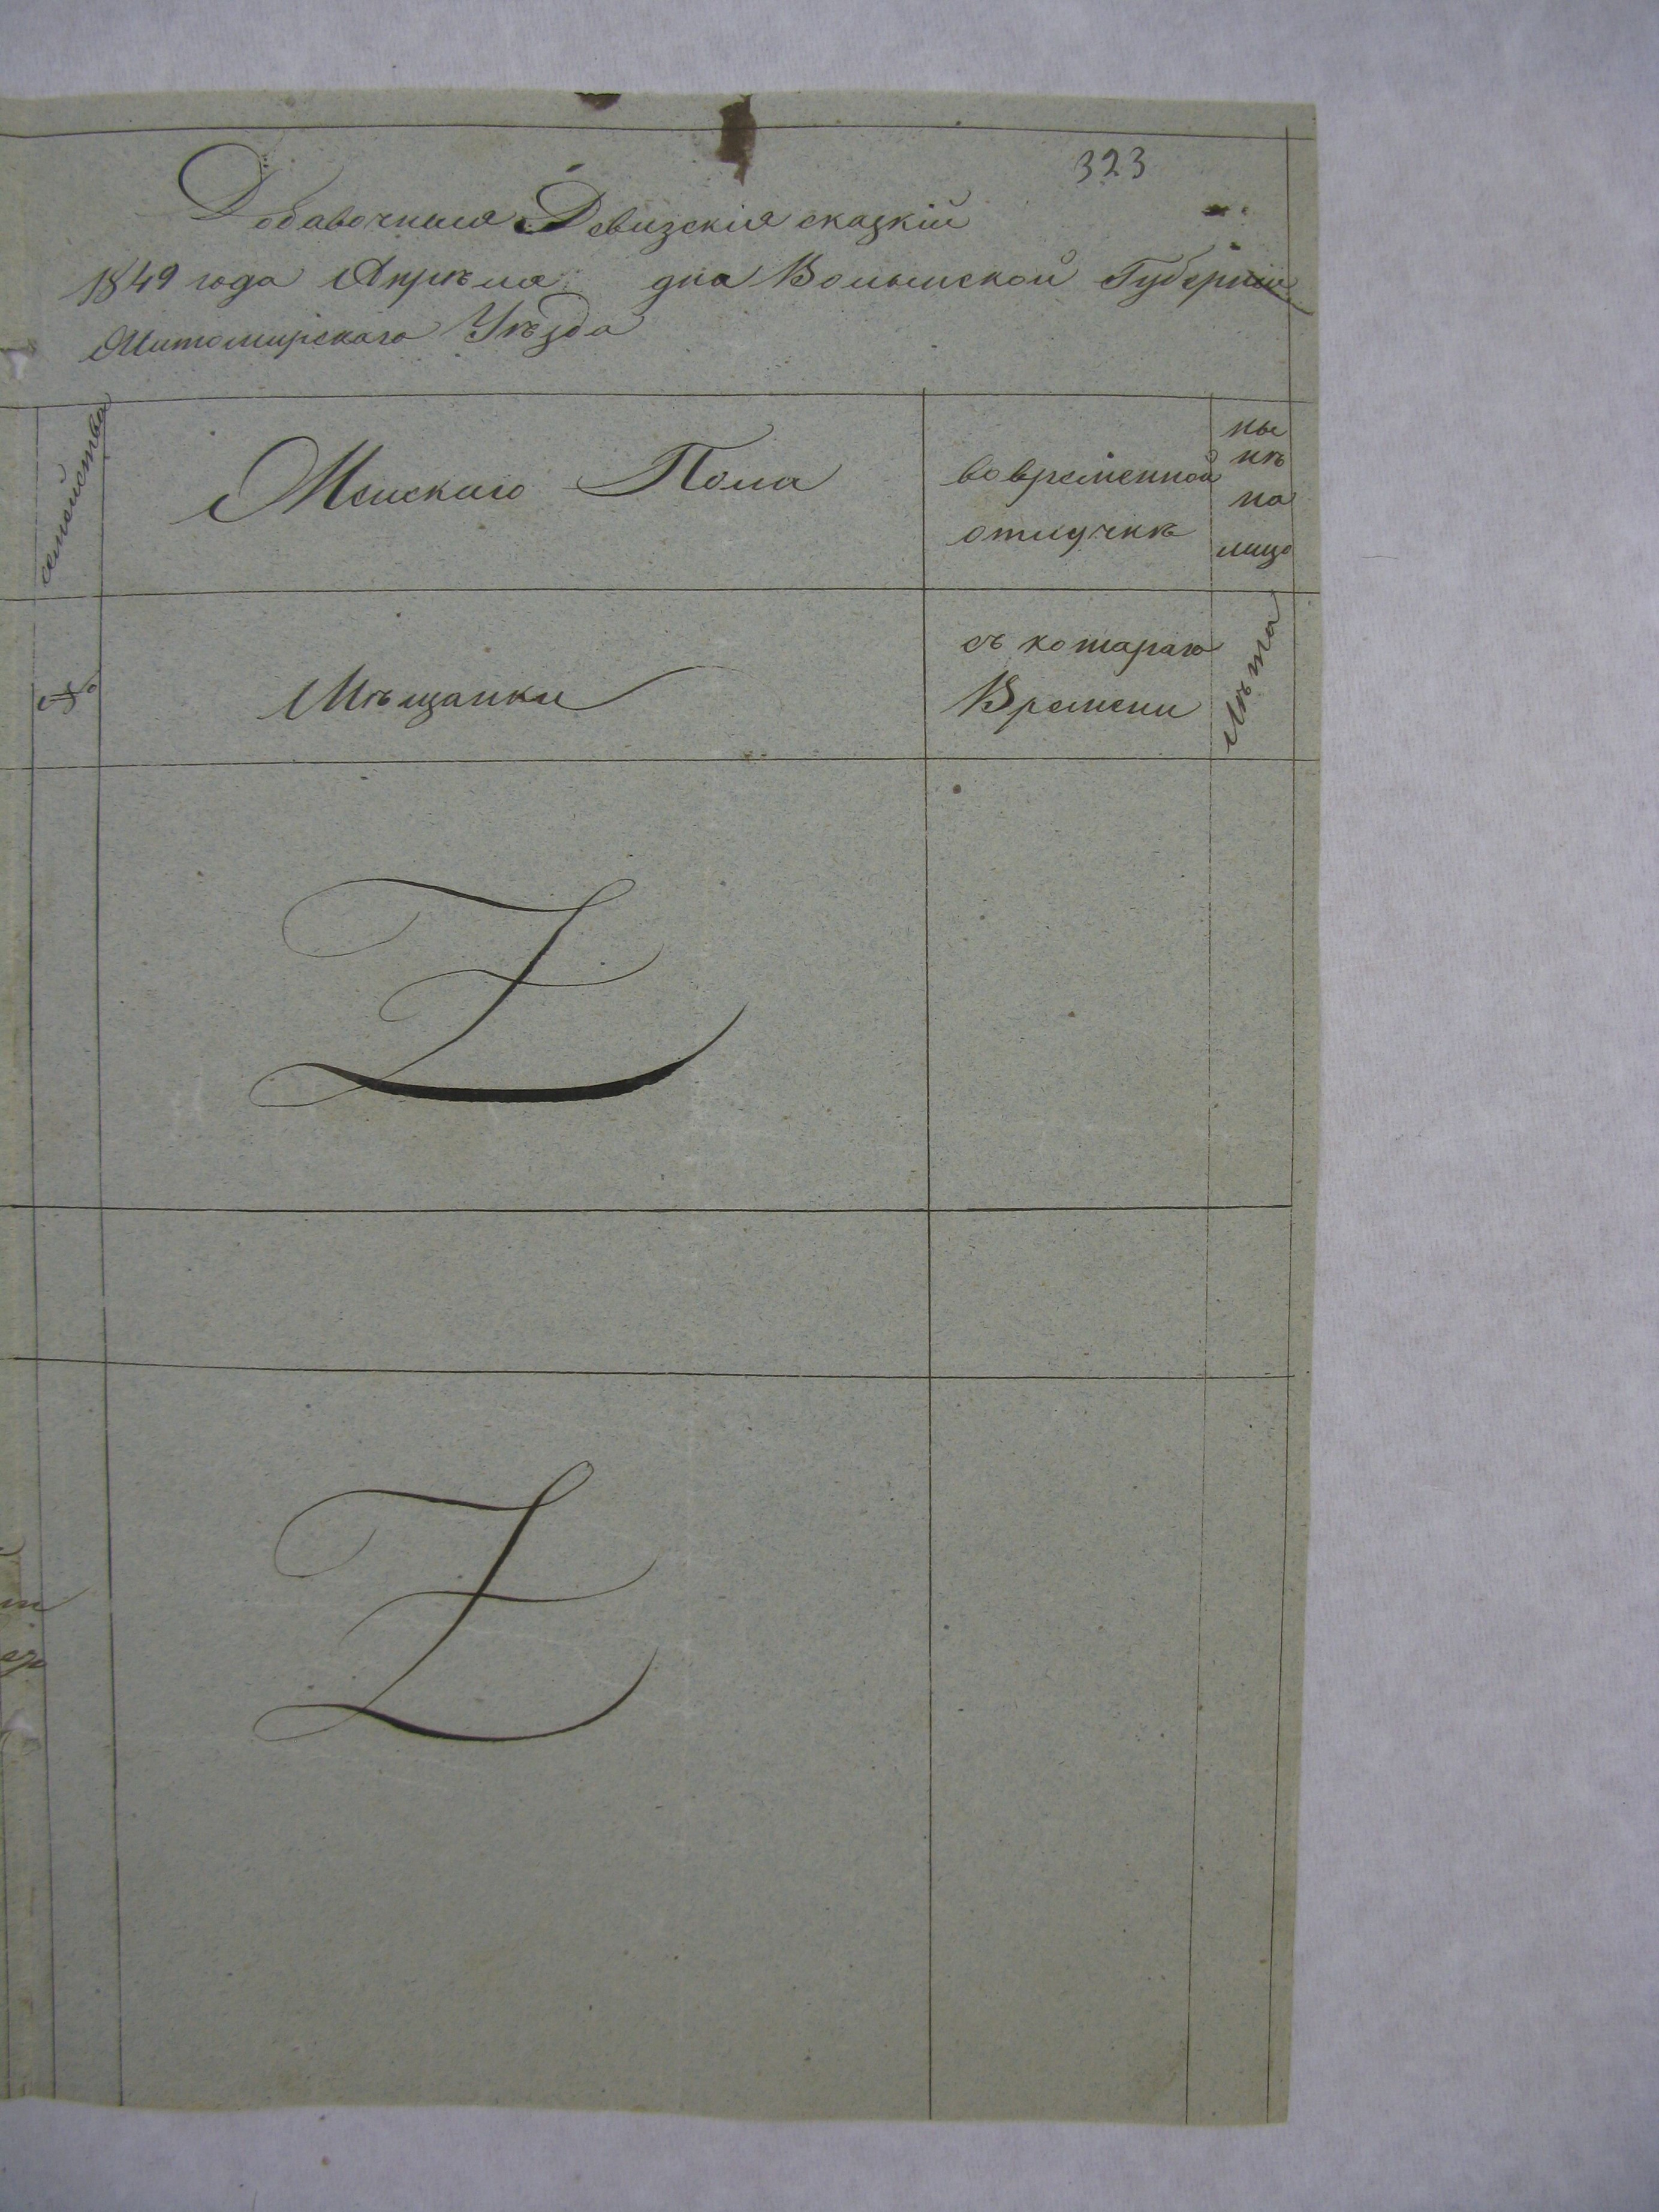 323
Добавочныя Ревизскія сказкій
1849 года Апрѣля дна Волынской Губерніи
Житомирскаго Уѣзда
семейства
Женскаго Пола
во временной
отлучкѣ
ны
нѣ
на
лицо
№
Мѣщанки
съ котараго
Времени
Лѣта